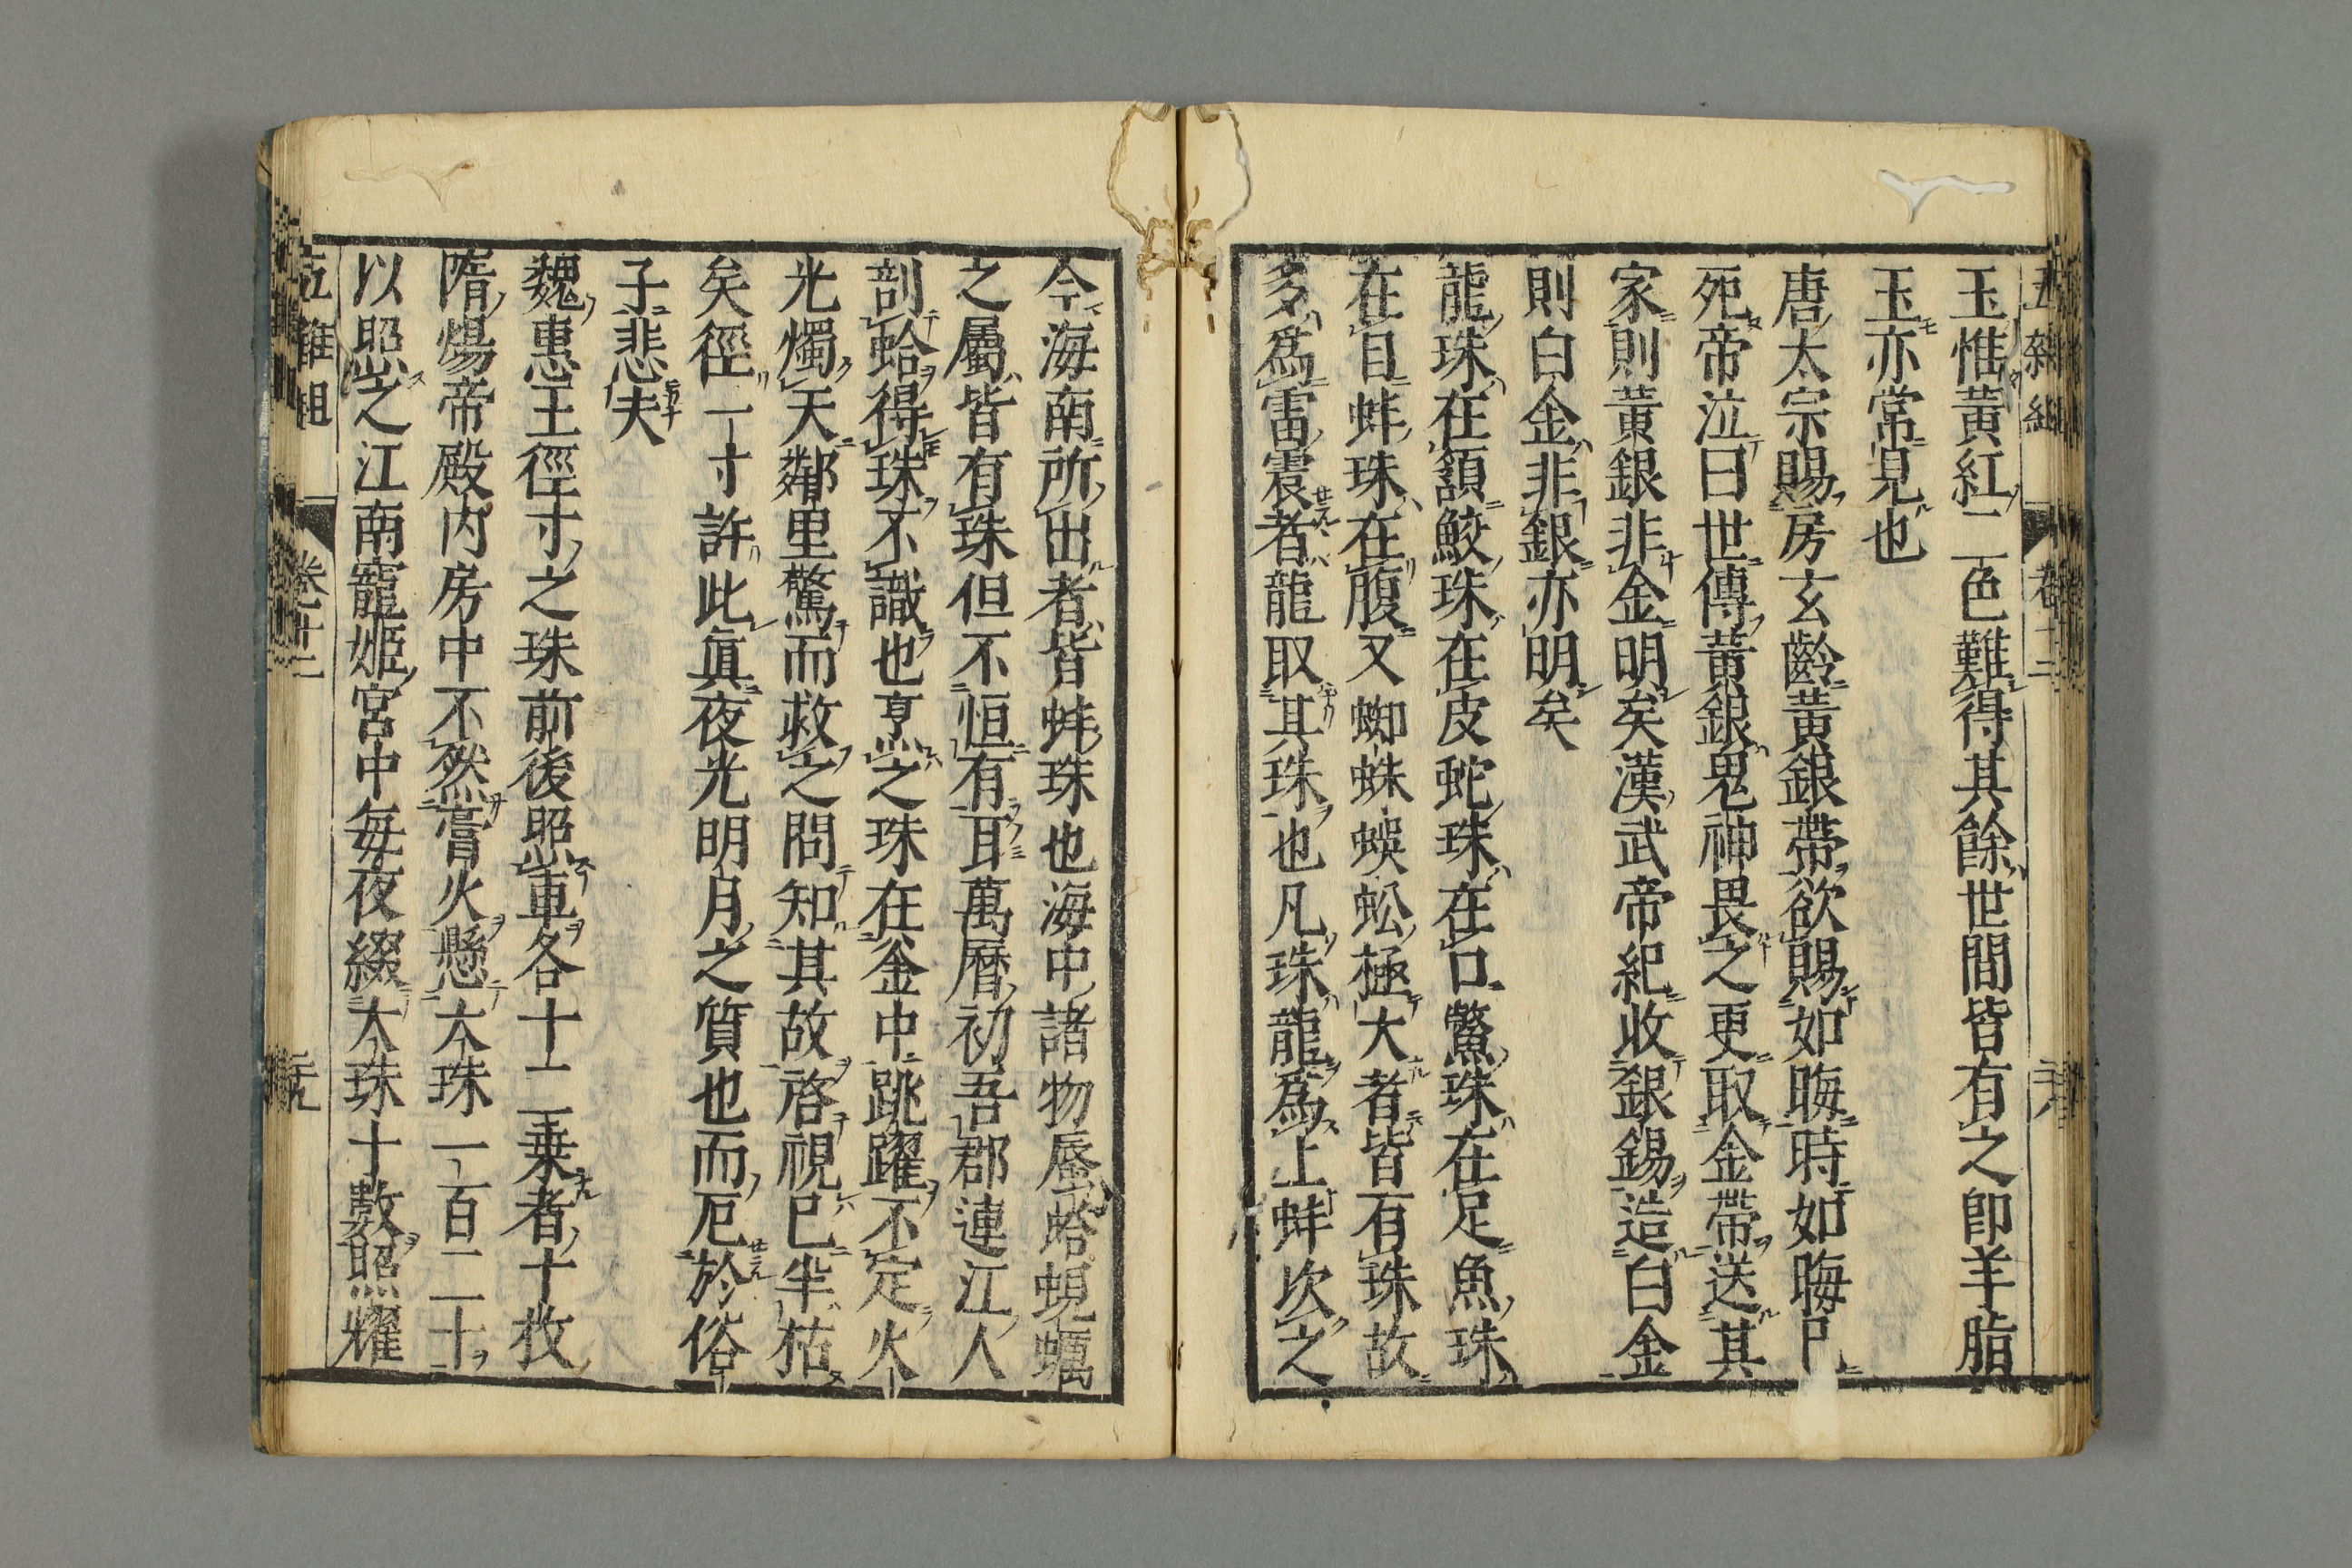 五雜組 卷十二 三十八
玉惟黃紅二色難得其餘世間皆有之卽羊脂
玉亦常見也
唐太宗賜房玄齡黃銀帶欲賜如晦時如晦巳
死帝泣曰世傳黃銀鬼神畏之更取金帶送其
家則黃銀非金明矣漢武帝紀收銀錫造白金
則白金非銀亦明矣
龍珠在頷鮫珠在皮蛇珠在口鱉珠在足魚珠
在目蚌珠在腹又蜘蛛蜈蚣極大者皆有珠故
多爲雷震者龍取其珠也凡珠龍爲上蚌次之
今海南所出者皆蚌珠也海中諸物蜃蛤蜆蠣
之屬皆有珠但不恒有耳萬曆初吾郡連江人
剖蛤得珠不識也烹之珠在釜中跳躍不定火
光燭天鄰里驚而救之問知其故啓視巳半枯
矣徑一寸許此眞夜光明月之質也而厄於俗
子悲夫
魏惠王徑寸之珠前後照車各十二乗者十枚
隋煬帝殿内房中不然膏火懸大珠一百二十
以照之江南寵姬宮中每夜綴大珠十數照耀
五雜組 卷十二 三十九